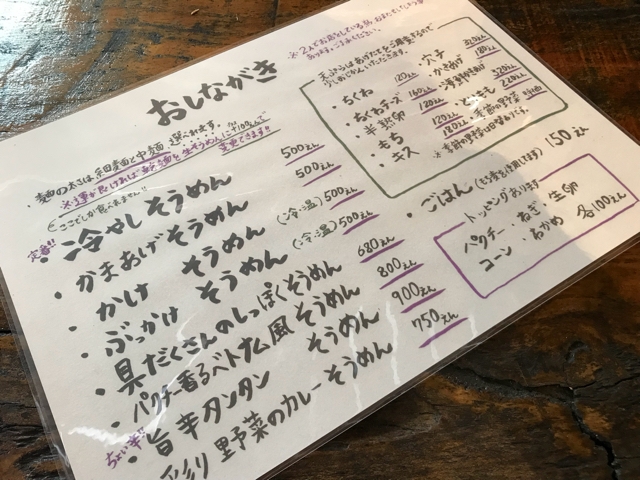 おしながき
麺の太さは、細麺と中麺 選べれます。
※運が良ければ 生そうめんに+110えんで
変更できます!!
ここでしか食べれません!!
定番!!
・冷やしそうめん 500えん
・かまあげそうめん 500えん
・かけ そうめん (冷・温) 500えん
・ぶっかけ そうめん (冷・温) 500えん
・具だくさんのしっぽくそうめん 680えん
・パクチー香るベトナム風そうめん 800えん
ちょい辛!!
・旨辛タンタン そうめん 900えん
彩り野菜のカレーそうめん 750えん
※2人でお店をしている為、お待たせしてしまう事
あります。ご了承ください。
天ぷらはあげたてをご用意するので
少しお時間いただきます。
・ちくわ 120えん
・ちくわチーズ 160えん
・半熟卵 120えん
・もち 120えん
・キス 120えん
・穴子 320えん
・かきあげ 180えん
・とり天 220えん
・季節の野菜
※季節の野菜は日替りです。
・ごはん 150えん
トッピングあります
パクチー・ねぎ・生卵
コーン・わかめ 各100えん